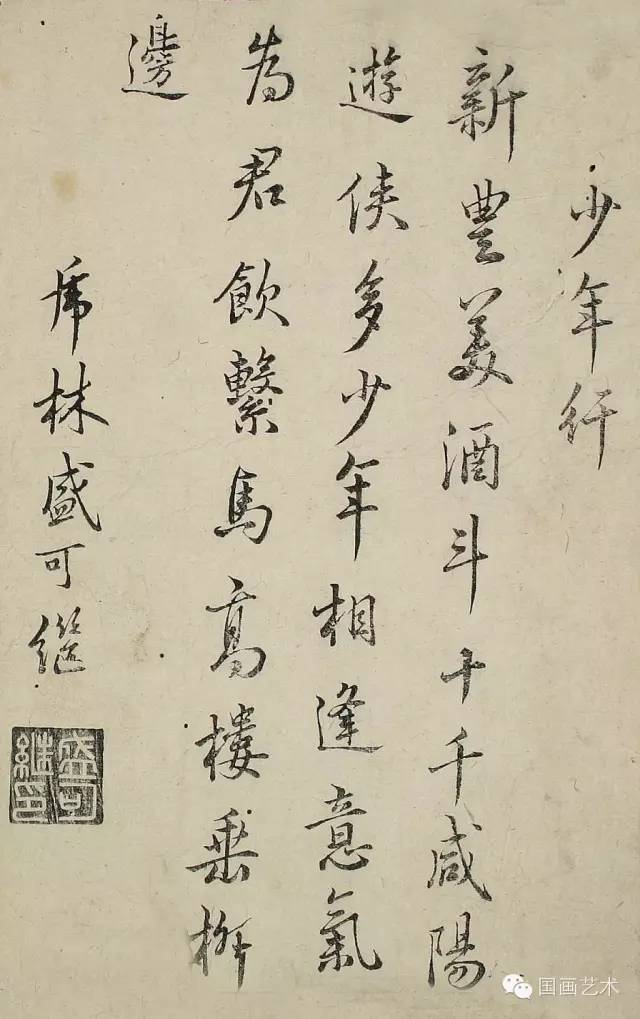 少年行
新豐美酒斗十千咸陽
遊俠多少年相逢意氣
為君飲繫馬高樓垂柳
邊
虎林盛可継
盛可
継印
国画艺术